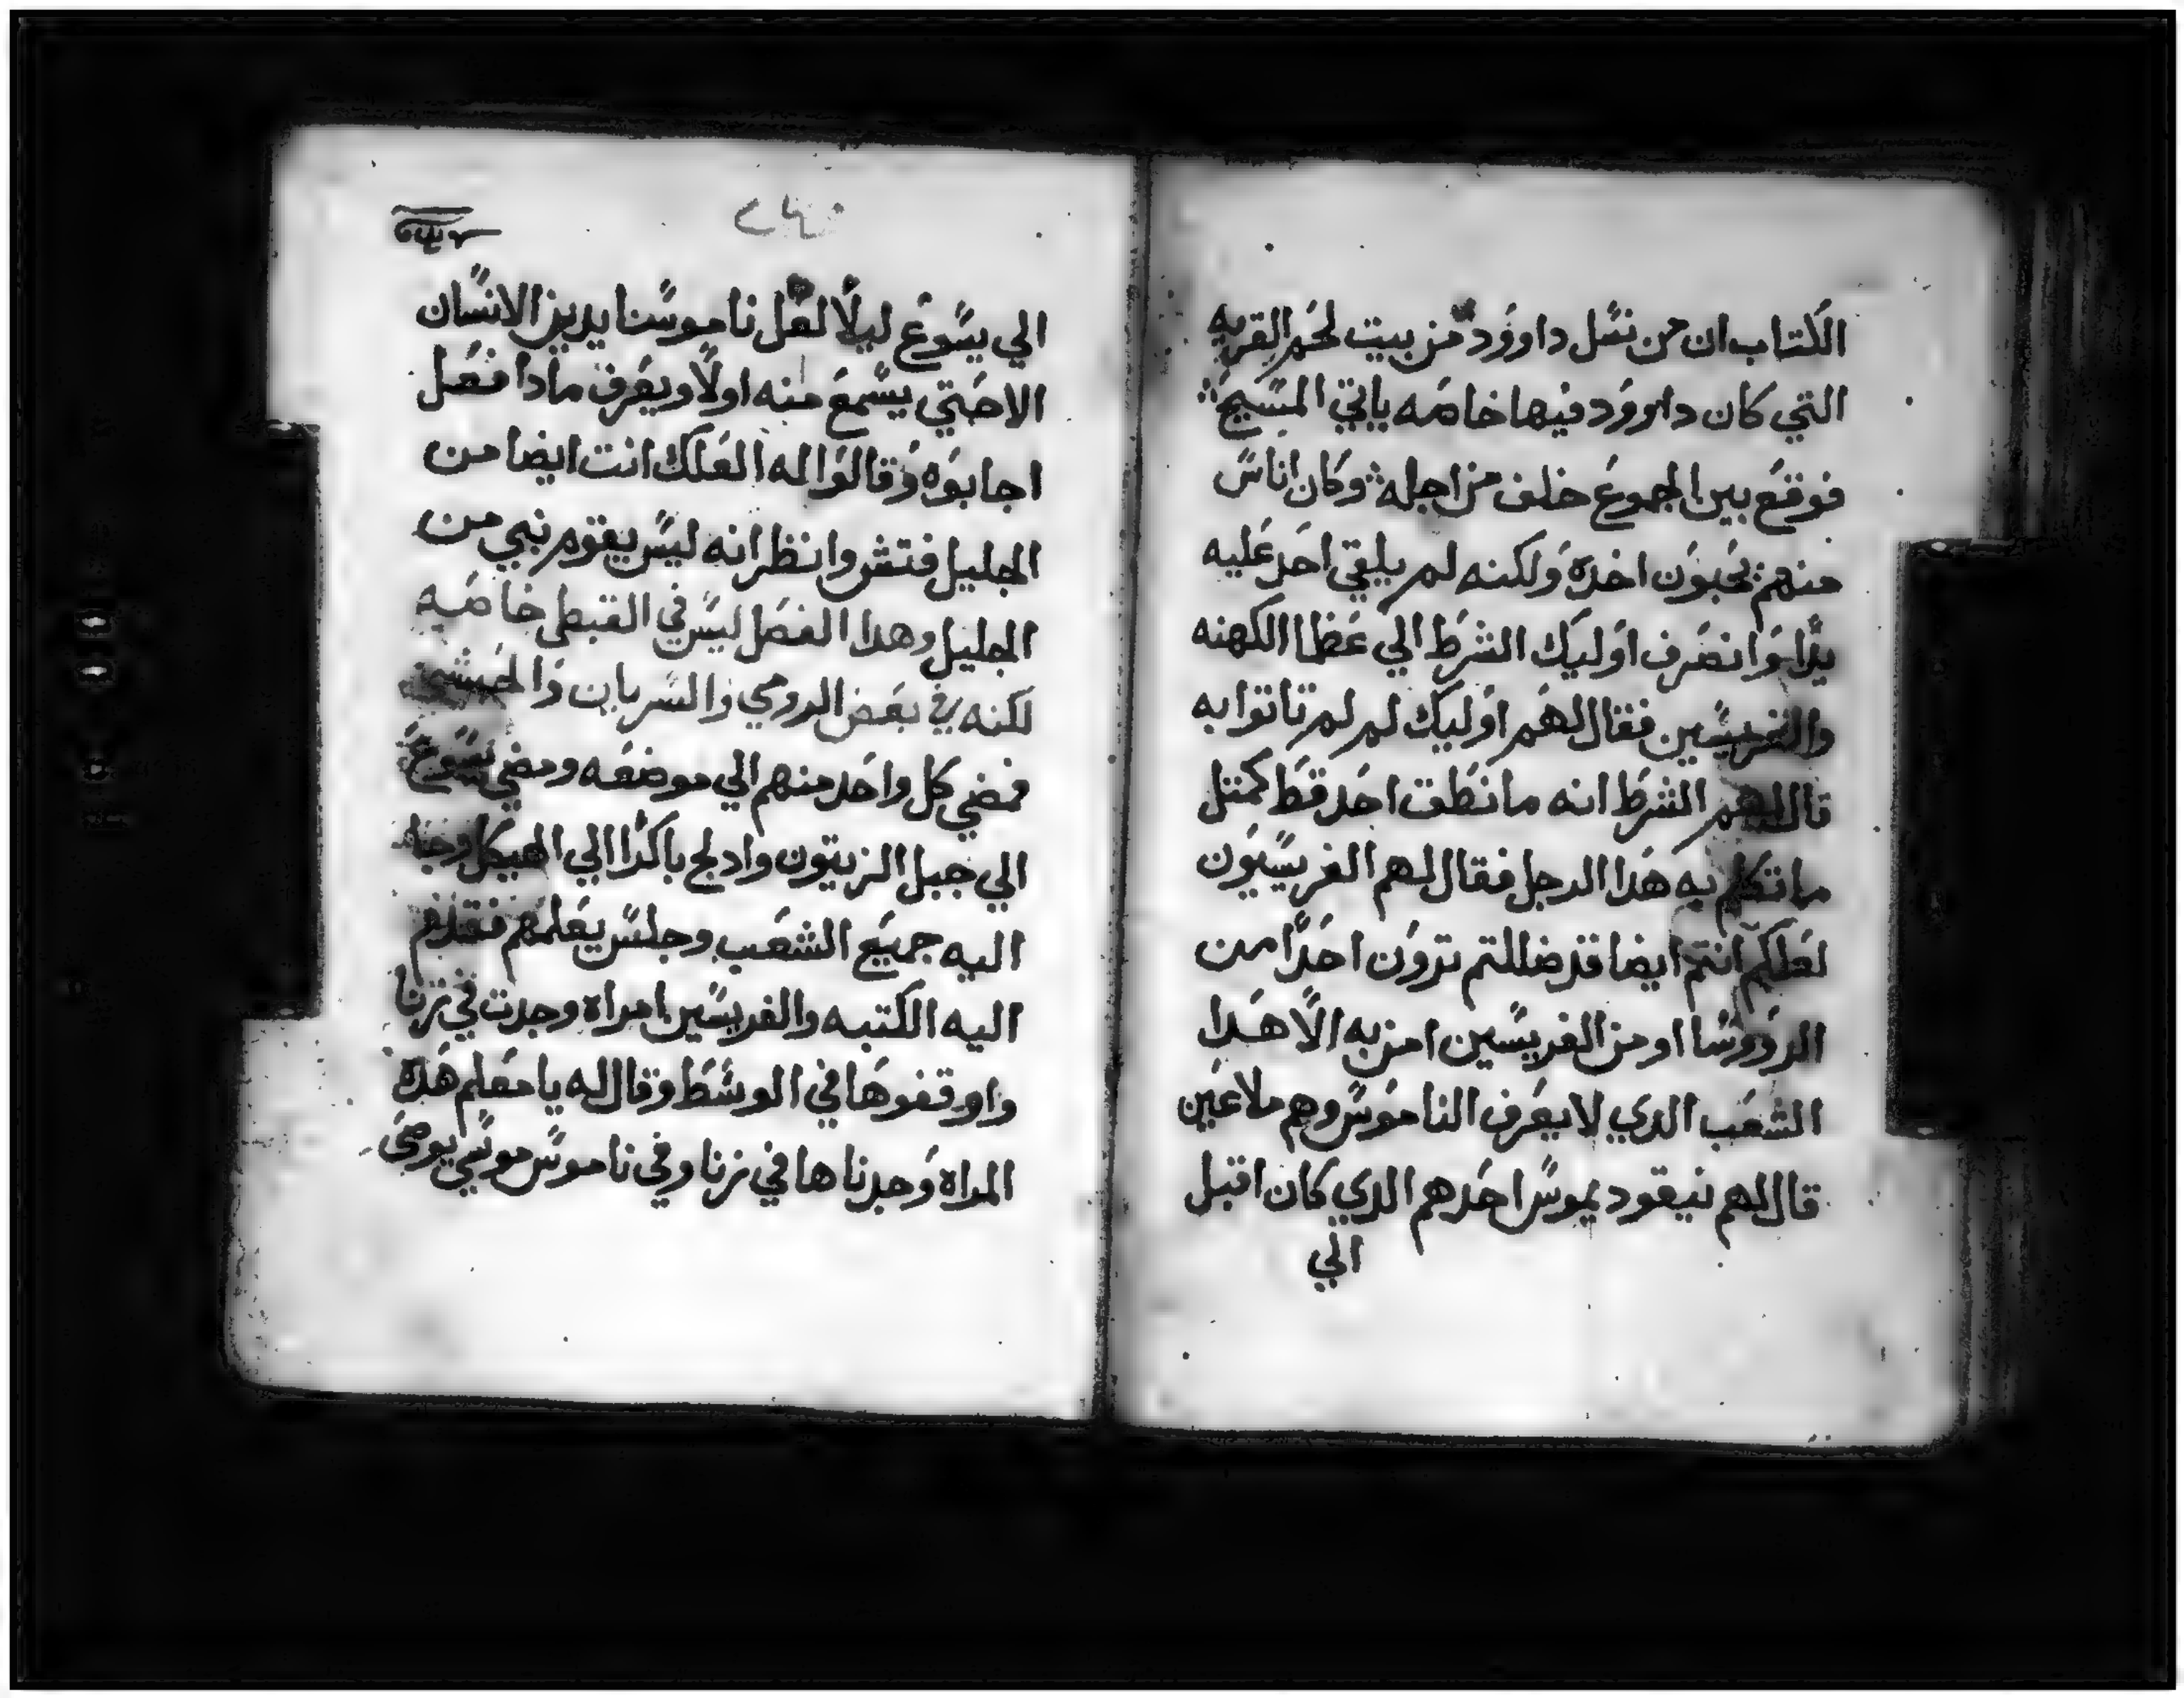 الكتاب ان من نسل داوود من بيت لحم القريه
التي كان داوود فيها خاصه ياتي المسيح
فوقع بين الجموع خلف من اجله وكان اناس
منهم يحبون اخده ولكنه لم يلقي احد عليه
يدا وانصرف اوليك الشرط الي عظما الكهنه
والفريسين فقال لهم اوليك لم لم تاتوا به
قال لهم الشرط انه ما نطق احد قط كمتل
ما تكلم به هدا الرجل فقال لهم الفريسيون
لعلكم انتم ايضا قد ضللتم ترون احدا من
الرووسا او من الفريسين امن به الا هدا
الشعب الدي لا يعرف الناموس وهم ملاعين
قال لهم نيقوديموس احدهم الدي كان اقبل
الي
الي يسوع ليلا لعل ناموسنا يدين الانسان
الا حتي يسمع منه اولا ويعرف مادا فعل
اجابوه وقالوا له العلك انت ايضا من
الجليل فتش وانظر انه ليس يقوم نبي من
الجليل وهدا الفصل ليس في القبطي خاصه
لكنه في بعض الرومي والسريان والحبشي
فمضي كل واحد منهم الي موضعه ومضي يسوع
الي جبل الزيتون وادلج باكرا الي الهيكل وجا
اليه جميع الشعب وجلس يعلمهم فقدم
اليه الكتبه والفريسين امراه وجدت في زنا
واوقفوها في الوسط وقال له يا معلم هده
المراه وجدناها في زنا وفي ناموس موسي يوصي